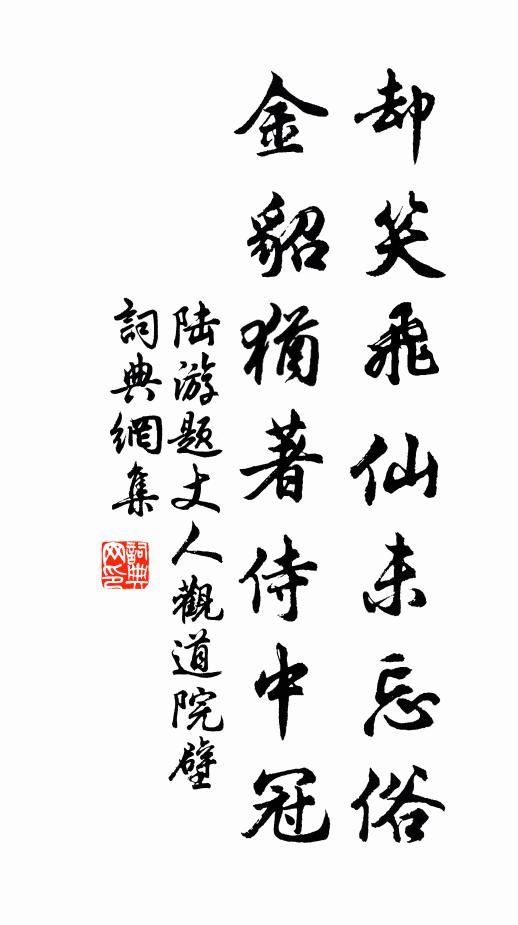 却笑飛仙未忘俗
金貂猶著侍中冠
陆游题丈人觀道院壁
詞典網集
詞典網印